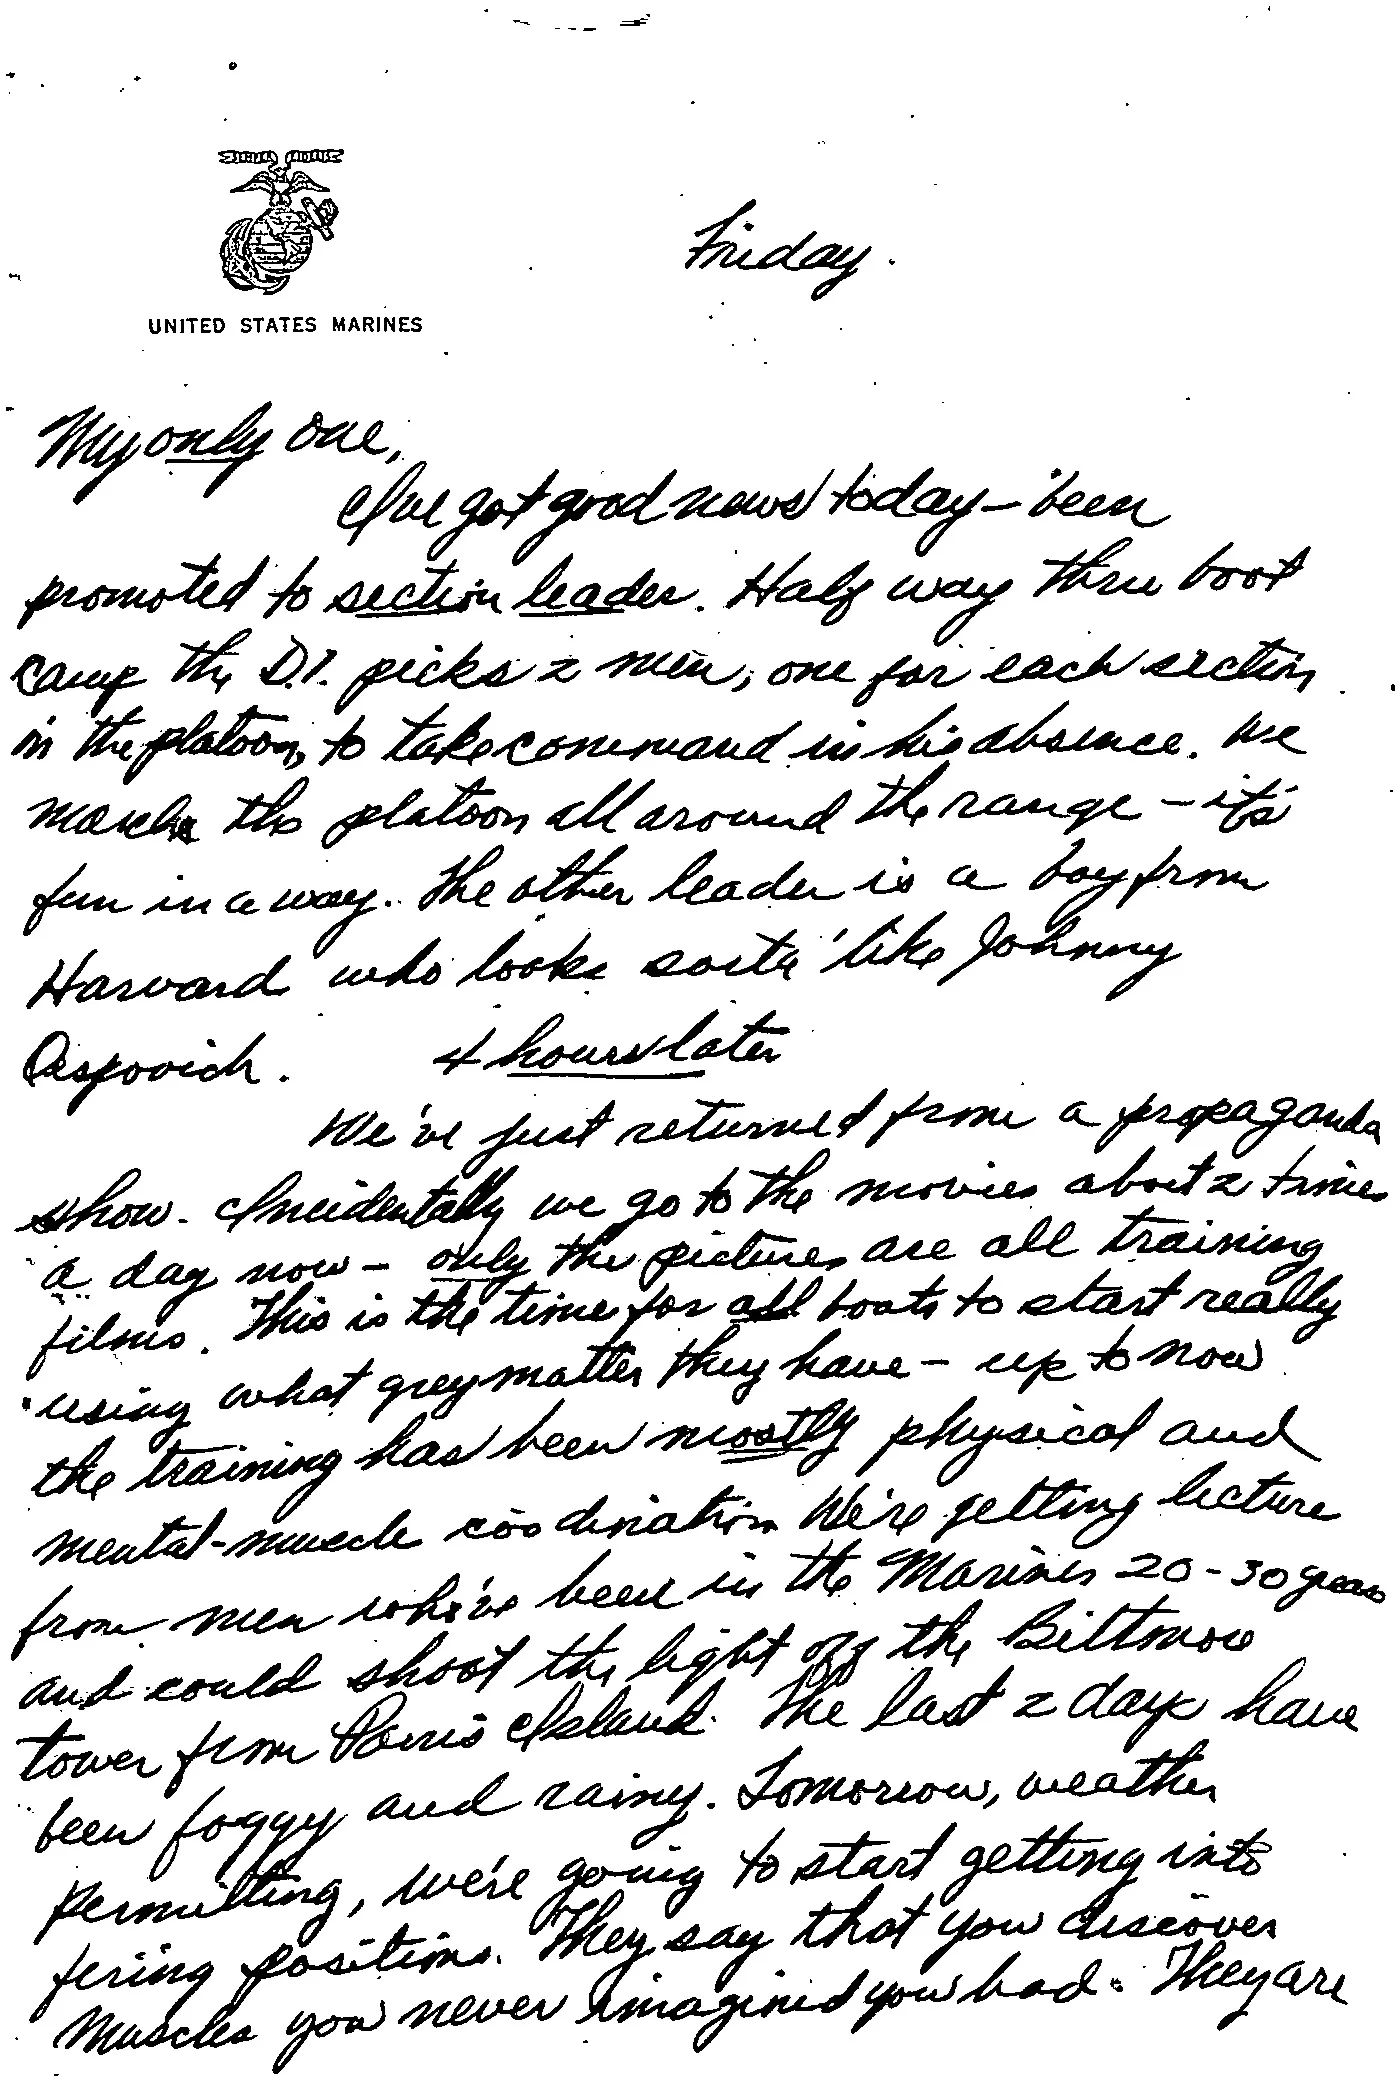 UNITED STATES MARINES
Friday.
My only one,
I've got good news today – been
promoted to section leader. Half way thru boot
camp the D.I. picks 2 men, one for each section
in the platoon, to take command in his absence. We
march the platoon all around the range – it's
fun in a way. The other leader is a boy from
Harvard who looks sorta' like Johnny
4 hours later
We've just returned from a propaganda
show. Incidentally we go to the movies about 2 times
a day now – only the pictures are all training
films. This is the time for all boots to start really
using what grey matter they have – up to now
the training has been mostly physical and
mental-muscle coordination We're getting lecture
from men who've been in the Marines 20-30 years
and could shoot the light off the Biltmore
tower from Parris Island. The last 2 days have
been foggy and rainy. Tomorrow, weather
permitting, we're going to start getting into
firing positions. They say that you discover
muscles you never imagined you had. They are